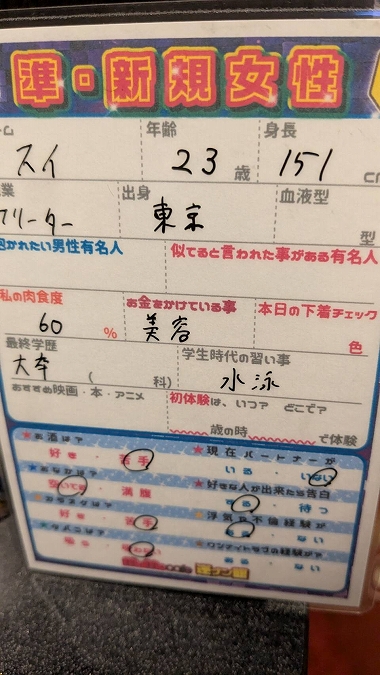 準・新規女性
ム 年齢 身長
スイ 23 歳 151 cm
業 出身 血液型
フリーター 東京 型
抱かれたい男性有名人 似てると言われた事がある有名人
私の肉食度 お金をかけている事 本日の下着チェック
60 % 美容 色
最終学歴 学生時代の習い事
大卒 ( 科) 水泳
おすすめ映画・本・アニメ 初体験は、いつ? どこで?
歳の時 で体験
お酒は? ★現在パートナーが
好き 苦手 いる いない
空いてる 満腹 ★好きな人が出来たら告白
カラオケは? する 待つ
好き 苦手 浮気や不倫経験が
ない
吸う ワンナイトラブの経験が?
ある ない